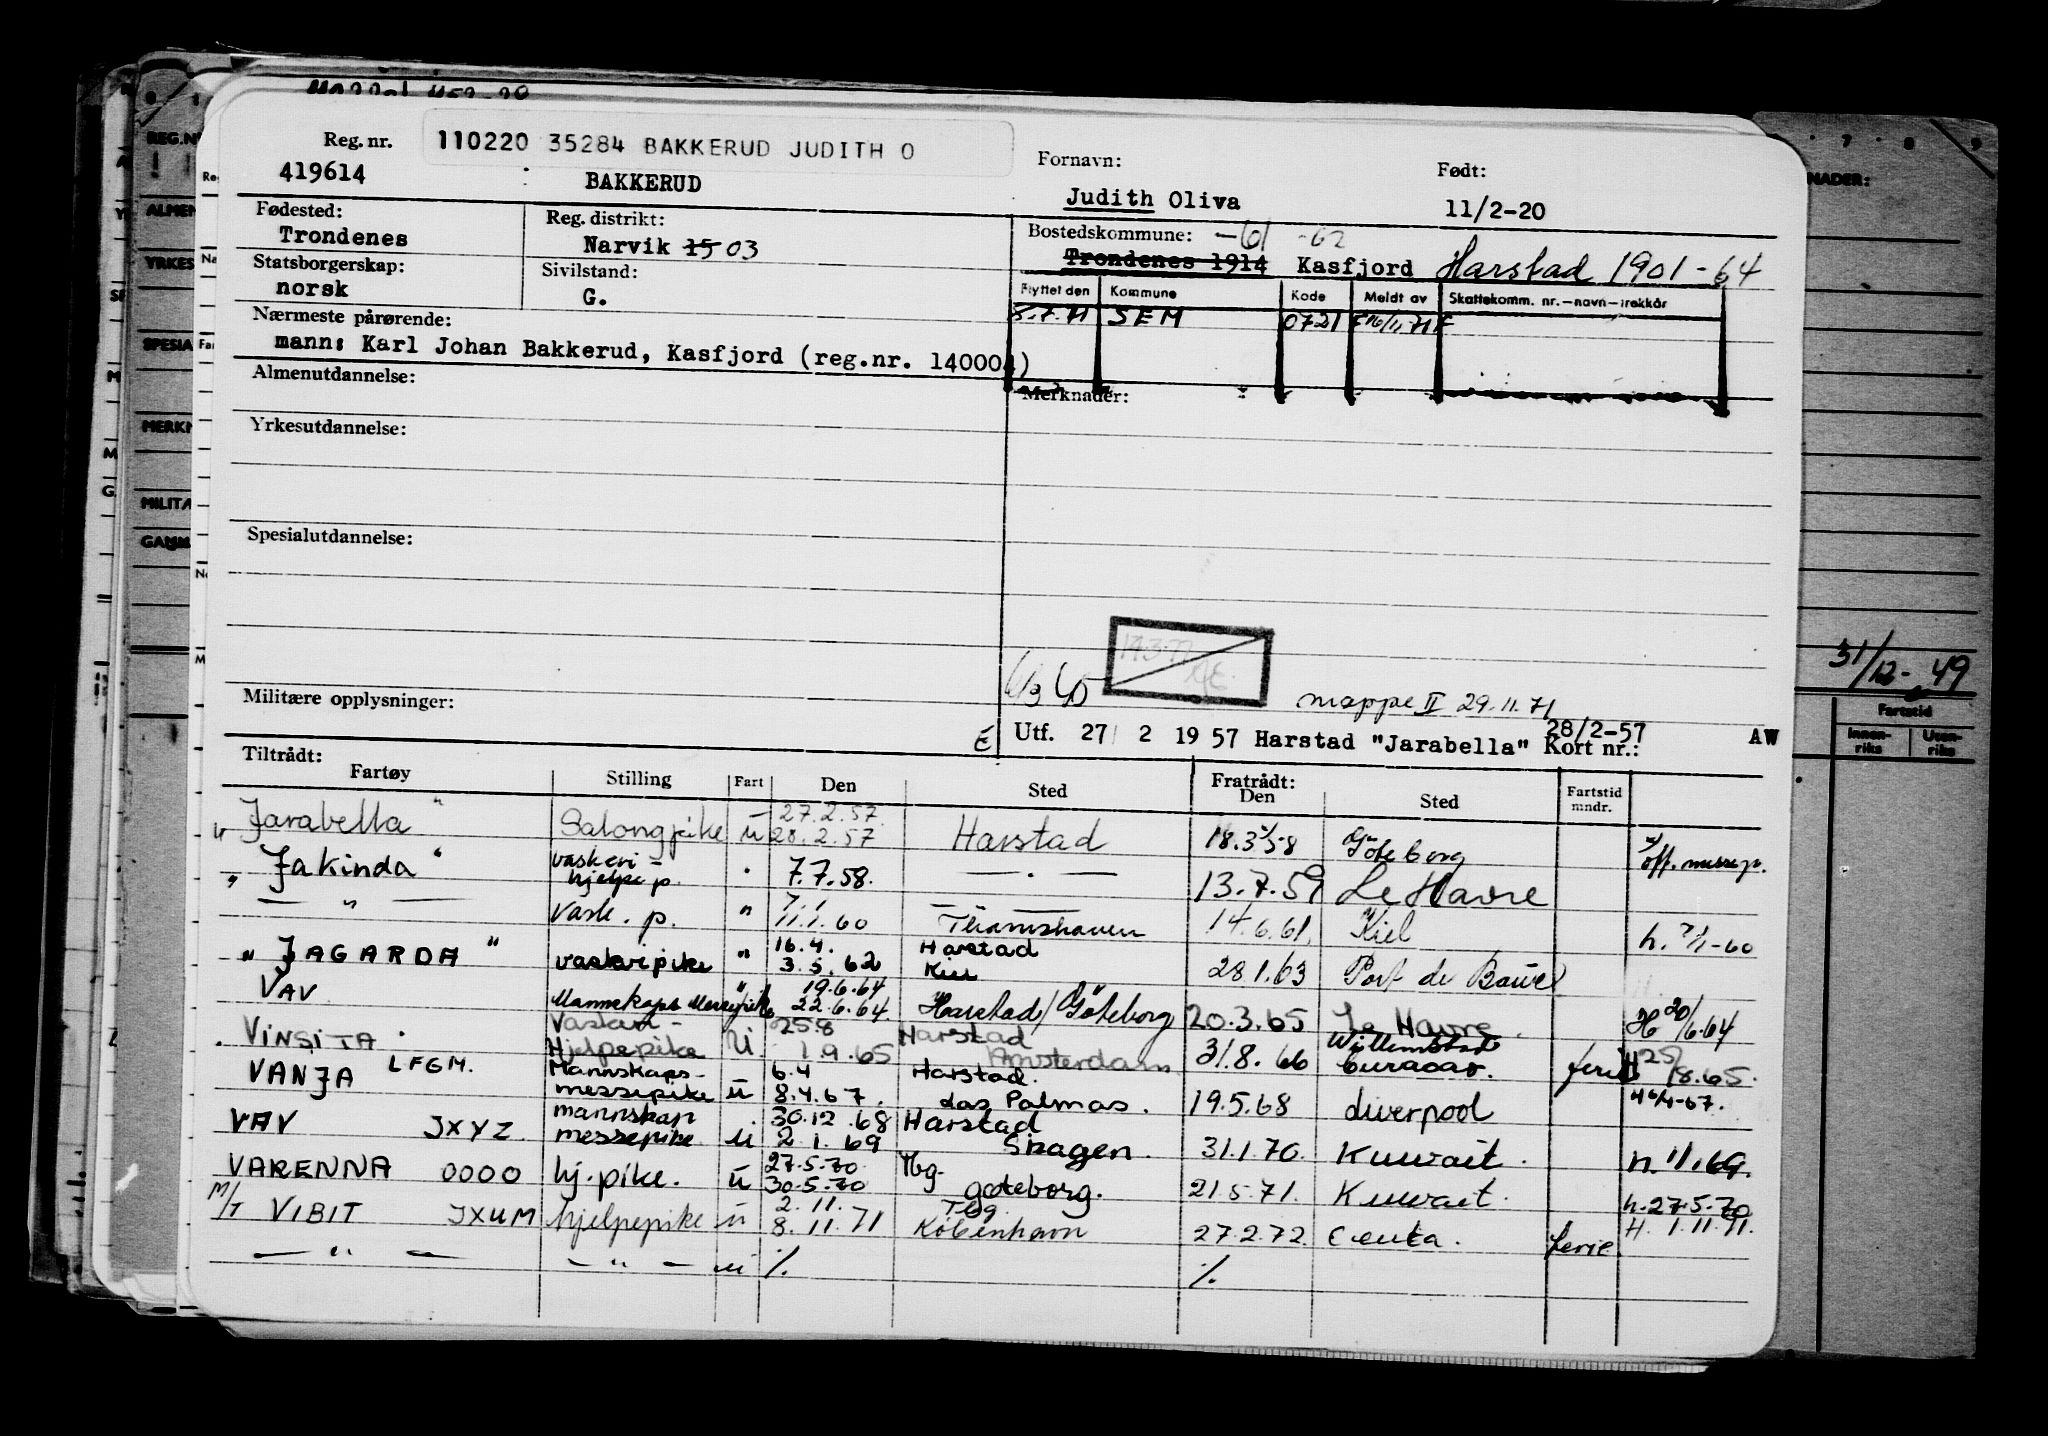 Reg. nr. 110220 35284 BAKKERUD JUDITH O
419614 BAKKERUD
Fornavn: Født:
Judith Oliva 11/2-20
Fødested: Reg. distrikt:
Trondenes Narvik 15 03
Bostedskommune: -61 -62
Trondenes 1914 Kasfjord Harstad 1901-64
Statsborgerskap: Sivilstand:
norsk G.
Flyttet den Kommune Kode Meldt av Skattekomm. nr.-navn-trekkår
8.7.71 SEM 0721
Nærmeste pårørende:
mann: Karl Johan Bakkerud, Kasfjord (reg.nr. 140004)
Almenutdannelse:
Merknader:
Yrkesutdannelse:
Spesialutdannelse:
Militære opplysninger:
mappe II 29.11.71
Utf. 27 2 1957 Harstad "Jarabella" 28/2-57 Kort nr.: AW
Tiltrådt: Fratrådt:
Fartøy Stilling Fart Den Sted Den Sted Fartstid mndr.
27.2.57
" Jarabella " Salongpike u 28.2.57 Harstad 18.3.58 Göteborg
" Jakinda " vaskeri-hjelpe p. " 7.7.58. — " — 13.7.59 Le Havre
— " — Vask. p. " 11.1.60 Thamshaven 14.6.61. Kiel h. 7/1-60
16.4. Harstad
" JAGARDA " vaskeripike " 3.5.62 Kiel 28.1.63 Port de Bouc
19.6.64
VAV Mannskaps Messepike " 22.6.64 Harstad/Göteborg 20.3.65 Le Havre H 20/6.64
Vaskeri- 25 8 Harstad Willemstad
VINSITA Hjelpepike U 1.9.65 Amsterdam 31.8.66 Curacao. ferie H 25/8.65.
Mannskaps- 6.4 Harstad.
VANJA LFGM. messepike u 8.4.67. Las Palmas. 19.5.68 Liverpool H 6/4-67.
mannskap 30.12.68 Harstad
VAV JXYZ messepike u 2.1.69 Skagen. 31.1.70. Kuwait. h. 1/1.69.
27.5.70 Tbg.
VARENNA OOOO hj.pike. u 30.5.70 Göteborg. 21.5.71. Kuwait. h.27.5.70
2.11. Tbg
M/T VIBIT JXUM hjelpepike u 8.11.71 København 27.2.72. Ceuta. ferie H. 1.11.71.
— " — — " — u % %
REG.NR
ALMEN
YRKES
SPESIA
MERKN
MILITA
31/12-49
Fartstid
Innen-riks Uten-riks